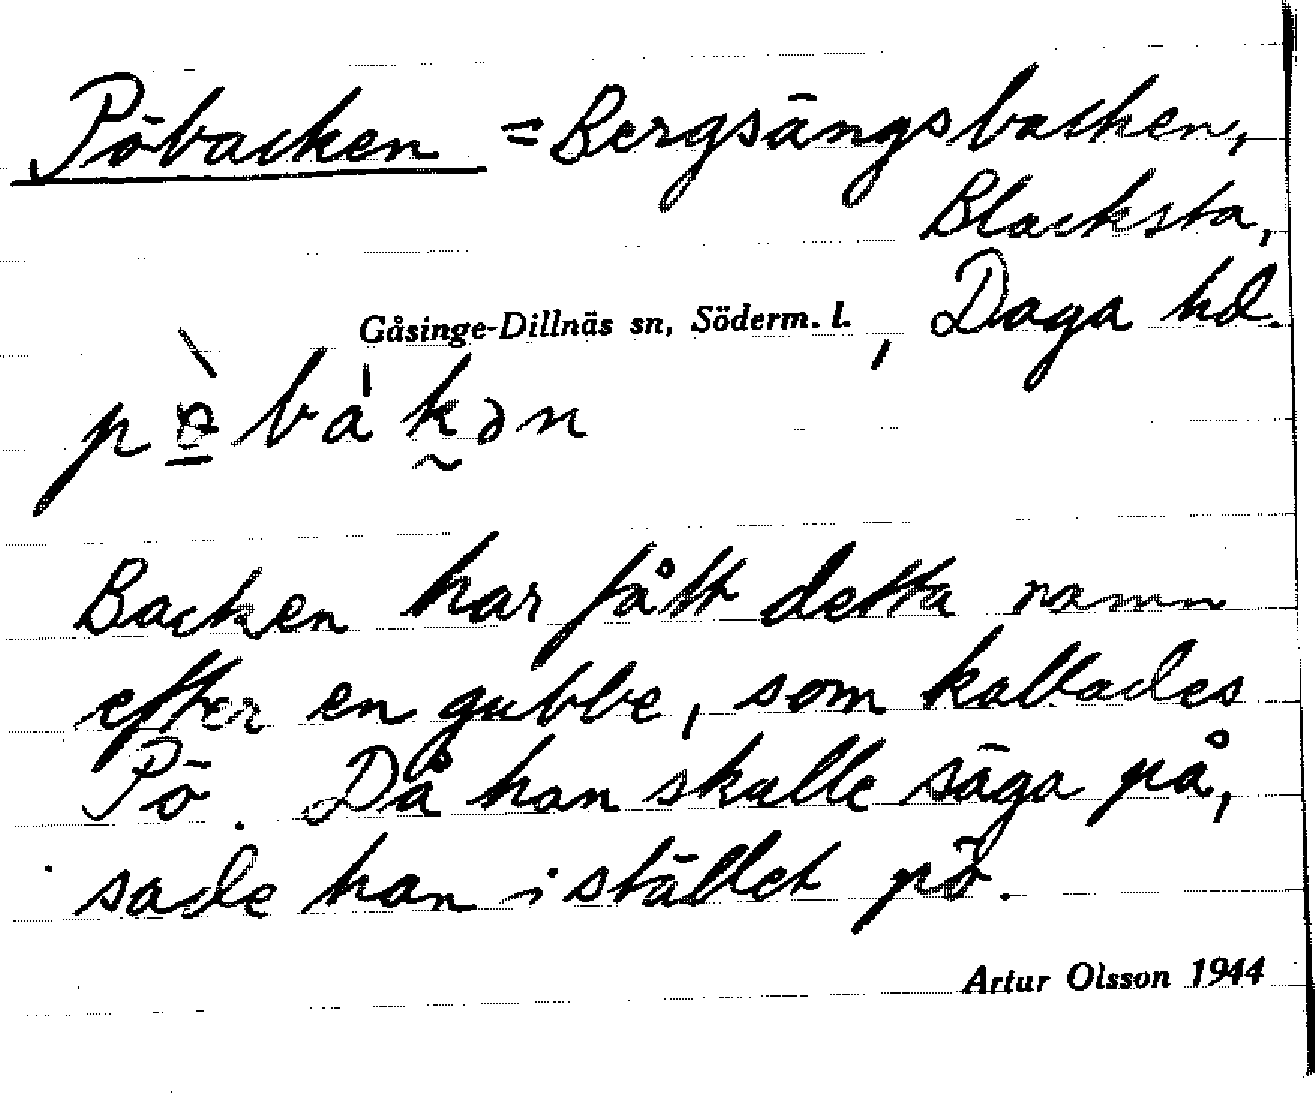 Pöbacken = Bergsängsbacken,
Blacksta,
Gåsinge-Dillnäs sn, Söderm. l., Daga hd.
Backen har fått detta namn
efter en gubbe, som kallades
Pö. Då han skulle säga på,
sade han i stället pö.
Artur Olsson 1944